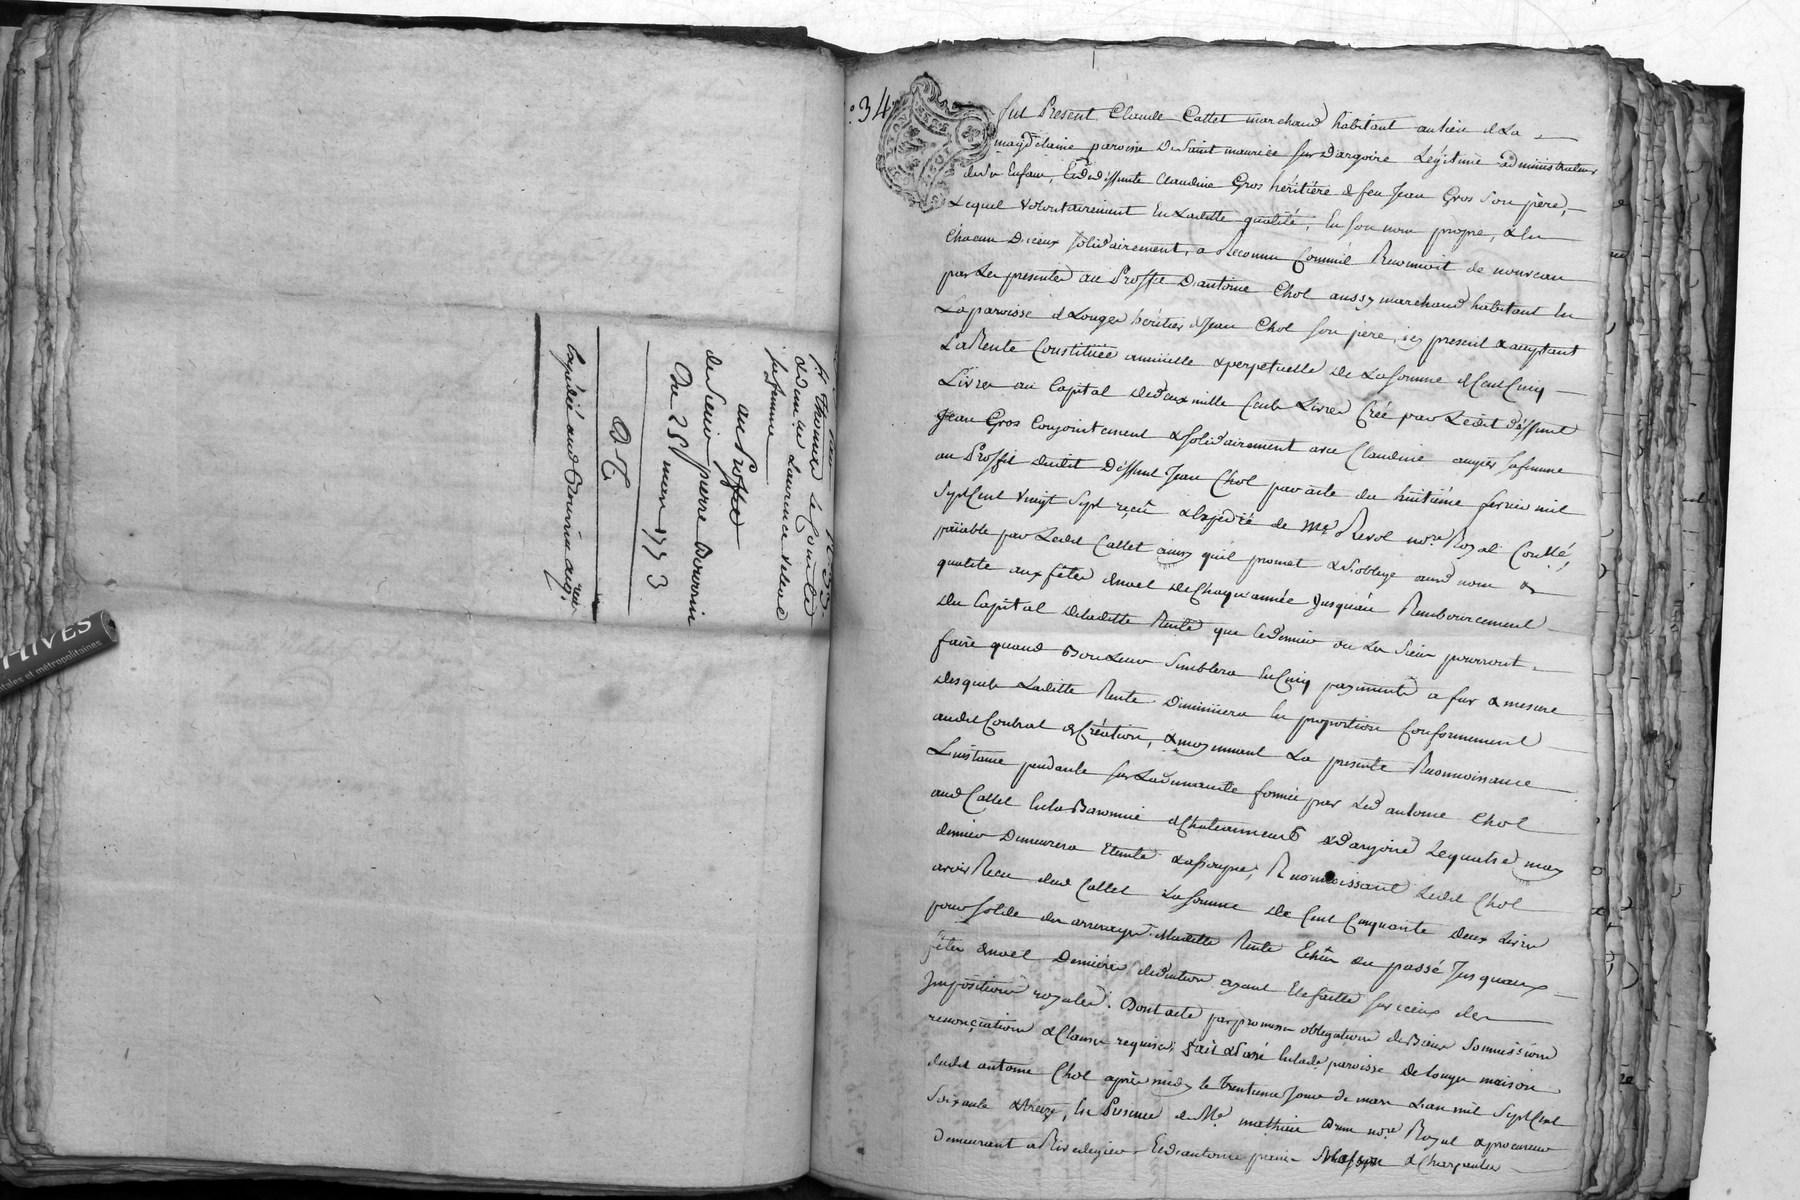 n° 33
fr thomas le Comte
& dam.lle Laurence velard
sa femme
au Proffit
de Sieur pierre Bourrin
Du 28 mars 1773
Expédiée aud Bourrin
ARCHIVES
tales et métropolitaines
: 34
fut Present Claude Cattet marchand habitant au lieu de La
magdelaine paroisse De Saint maurice sur Dargoire Légitime administrateur
de ses Enfans, Et de déffunte Claudine Gros héritière de feu Jean Gros Son père,
Lequel volontairement En Laditte qualité, En son nom propre, & En
chacun Diceux Solidairement, a Reconnu Comme il Reconnoit de nouveau
par Les presentes au Proffit D'antoine Chol aussy marchand habitant En
La paroisse de Longes héritier de Jean Chol son pere, icy present & acceptant
La Rente Constituée annuelle & perpetuelle de La somme de Cent Cinq
Livres au Capital de deux mille Cent Livres Créé par Ledit déffunt
Jean Gros Conjointement & solidairement avec Claudine augier sa femme
au Proffit dudit Déffunt Jean Chol par acte du huitième fevrier mil
Sept Cent vingt Sept reçu & Expedié de Me Revol nore Royal Contllé,
païable par Ledit Cattet ainsy qu'il promet & s'oblige aud nom &
qualité aux fêtes de noel De Chaque année Jusqu'au Rembourcement
du Capital de laditte Rente que ce dernier ou Les Siens pourront
faire quand Bon Leur Semblera En Cinq payements a fur & mesure
desquels Laditte Rente Diminuera En proportion Conformement
audit Contrat de Création, & moyennant La presente Reconnoissance
L'instance pendante sur La demande formée par Led antoine Chol
aud Cattet En la Baronnie de Chateauneuf & dargoire Le quatre may
dernier Demeurera Eteinte & assoupie, Reconnoissant Ledit Chol
avoir Recu dud Cattet La somme de Cent Cinquante deux Livres
pour solde des arrerages de laditte Rente Echûs du passé Jusquaux
fêtes de noel Dernieres deduction ayant Eté faitte sur iceux des
Impositions royales. Dont acte par promesses obligations de Biens Soumissions
renonciations & Clauses requises, fait & Passé En lade paroisse de Longes maison
dudit antoine Chol après midy le trentieme Jour de mars L'an mil Sept Cent
Soixante & treize, En Presence de Me mathieu nore Royal & procureur
demeurant a Rivedegier Et d'antoine & Charpentier